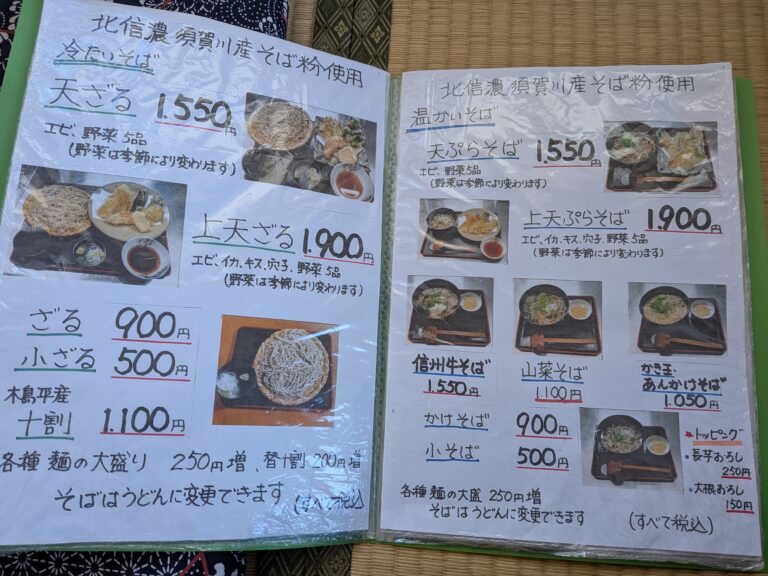 北信濃 須賀川産そば粉使用
冷たいそば
天ざる 1.550円
エビ、野菜5品
(野菜は季節により変わります)
上天ざる 1.900円
エビ、イカ、キス、穴子、野菜5品
(野菜は季節により変わります)
ざる 900円
小ざる 500円
木島平産
十割 1.100円
各種 麺の大盛り 250円増、替十割 200円増
そばはうどんに変更できます (すべて税込
北信濃 須賀川産そば粉使用
温かいそば
天ぷらそば 1.550円
エビ、野菜5品
(野菜は季節により変わります)
上天ぷらそば 1.900円
エビ、イカ、キス、穴子、野菜5品
(野菜は季節により変わります)
信州牛そば
1.550円
山菜そば
1.100円
かき玉、
あんかけそば
1.050円
かけそば 900円
小そば 500円
トッピング
・長芋おろし
250円
・大根おろし
150円
各種 麺の大盛 250円増
そばはうどんに変更できます (すべて税込)